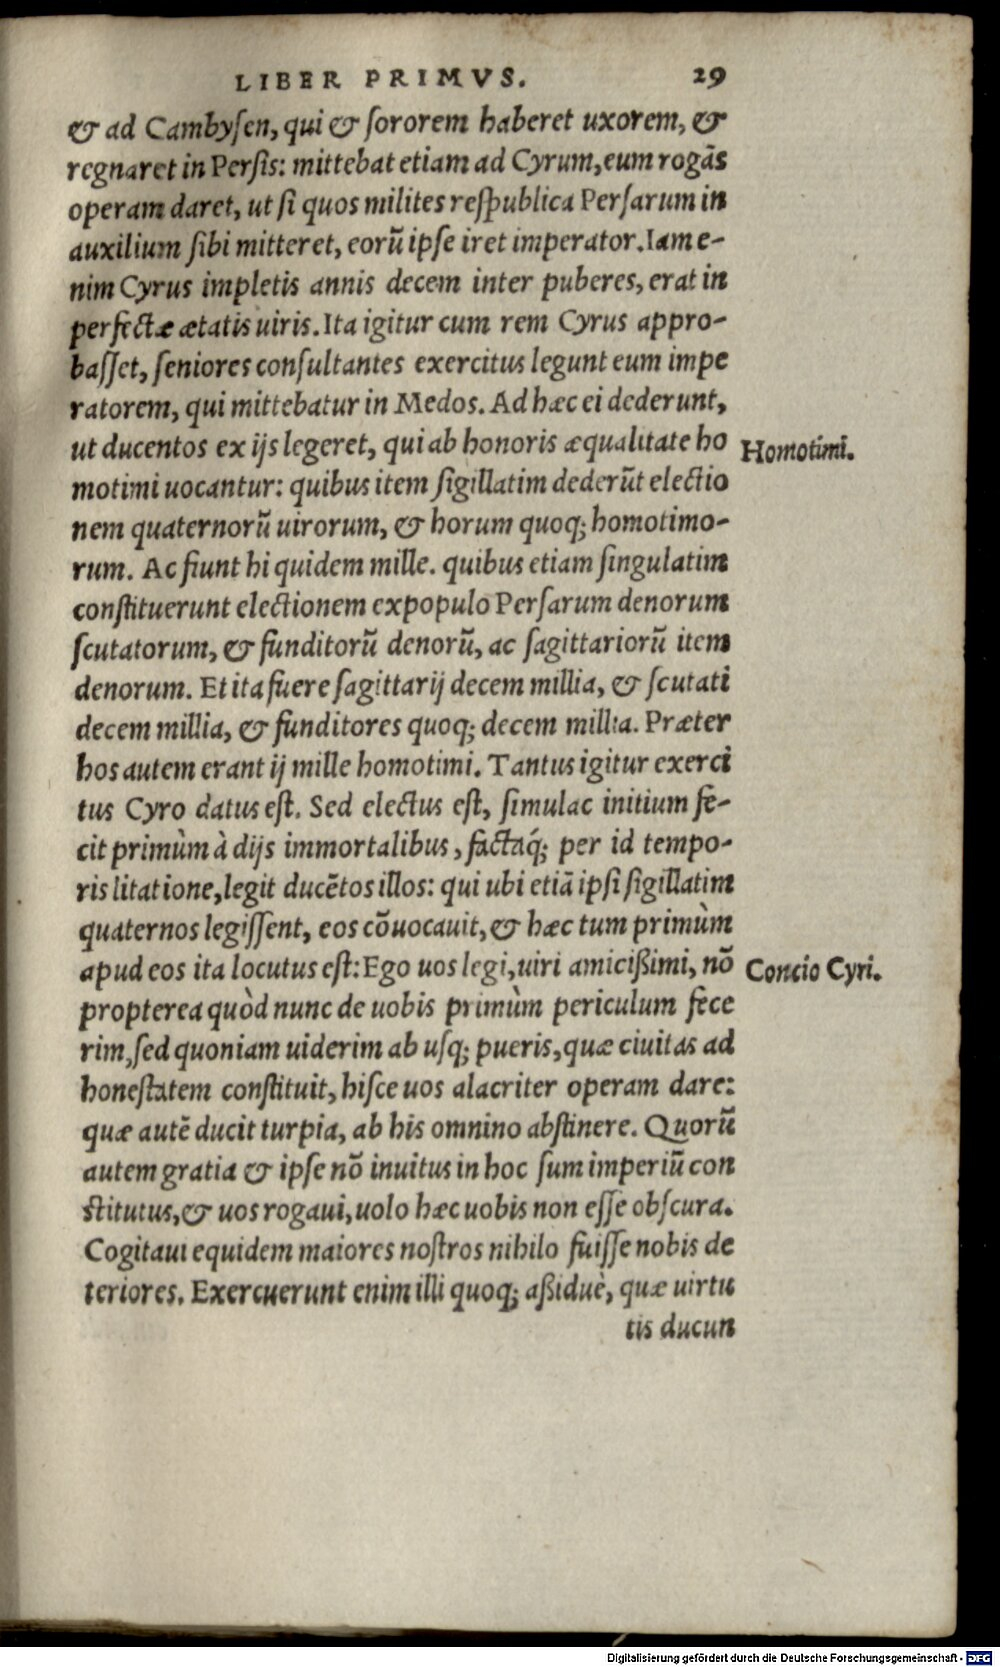 LIBER PRIMVS. 29
& ad Cambysen, qui & sororem haberet uxorem, &
regnaret in Persis: mittebat etiam ad Cyrum, eum rogãs
operam daret, ut si quos milites respublica Persarum in
auxilium sibi mitteret, eorũ ipse iret imperator. Iam e-
nim Cyrus impletis annis decem inter puberes, erat in
perfectæ ætatis uiris. Ita igitur cum rem Cyrus appro-
basset, seniores consultantes exercitus legunt eum impe
ratorem, qui mittebatur in Medos. Ad hæc ei dederunt,
ut ducentos ex ijs legeret, qui ab honoris æqualitate ho
Homotimi.
motimi uocantur: quibus item sigillatim dederũt electio
nem quaternorũ uirorum, & horum quoq; homotimo-
rum. Ac fiunt hi quidem mille. quibus etiam singulatim
constituerunt electionem ex populo Persarum denorum
scutatorum, & funditorũ denorũ, ac sagittariorũ item
denorum. Et ita fuere sagittarij decem millia, & scutati
decem millia, & funditores quoq; decem millia. Præter
hos autem erant ij mille homotimi. Tantus igitur exerci
tus Cyro datus est. Sed electus est, simulac initium fe-
cit primùm à dijs immortalibus, factaq́; per id tempo-
ris litatione, legit ducẽtos illos: qui ubi etiã ipsi sigillatim
quaternos legissent, eos cõuocauit, & hæc tum primùm
apud eos ita locutus est: Ego uos legi, uiri amicißimi, nõ
Concio Cyri.
propterea quòd nunc de uobis primùm periculum fece
rim, sed quoniam uiderim ab usq; pueris, quæ ciuitas ad
honestatem constituit, hisce uos alacriter operam dare:
quæ autẽ ducit turpia, ab his omnino abstinere. Quorũ
autem gratia & ipse nõ inuitus in hoc sum imperiũ con
stitutus, & uos rogaui, uolo hæc uobis non esse obscura.
Cogitaui equidem maiores nostros nihilo fuisse nobis de
teriores. Exercuerunt enim illi quoq; aßiduè, quæ uirtu
tis ducun
Digitalisierung gefördert durch die Deutsche Forschungsgemeinschaft - DFG